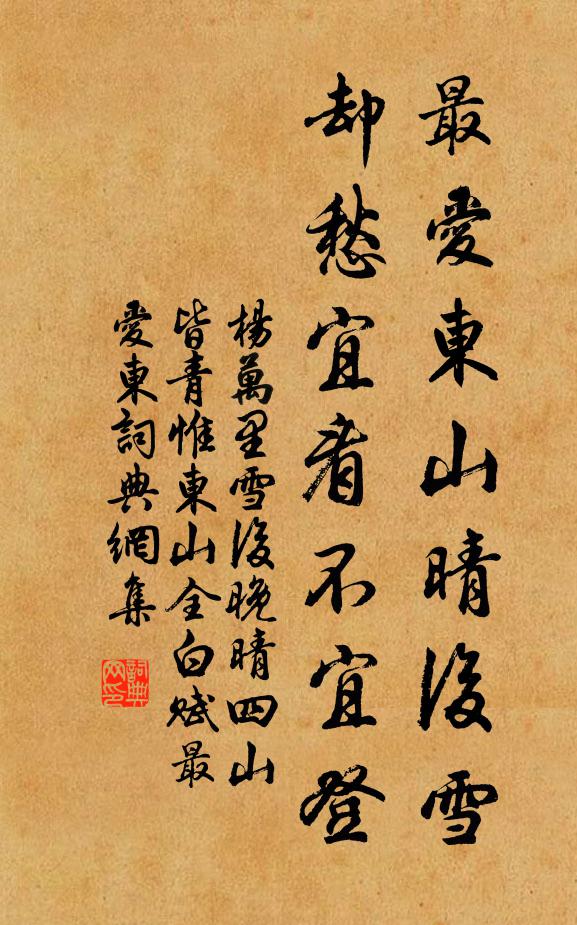 最愛東山晴後雪
却愁宜看不宜登
楊萬里雪後晚晴四山
皆青惟東山全白賦最
愛東詞典網集
詞典
网印